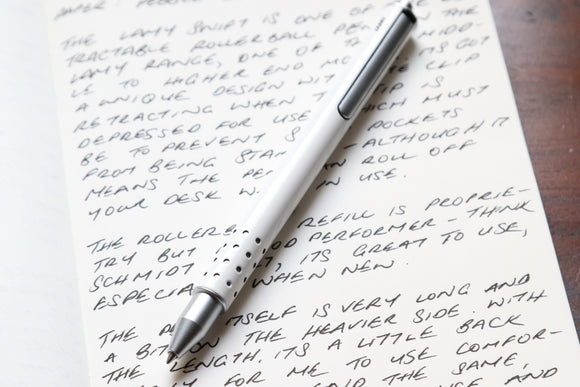 PAPER:
THE LAMY SWIFT IS ONE OF THE
TRACTABLE ROLLERBALL PE THE
LAMY RANGE, ONE OF MIDD-
LE TO HIGHER END MO S GOT
A UNIQUE DESIGN WIT E CLIP
RETRACTING WHEN T TIP IS
DEPRESSED FOR USE HICH MUST
BE TO PREVENT S POCKETS
FROM BEING STA - ALTHOUGH IT
MEANS THE PE AN ROLL OFF
YOUR DESK W IN USE.
THE ROLLERB REFILL IS PROPRIE-
TRY BUT I OD PERFORMER - THINK
SCHMIDT T, ITS GREAT TO USE,
ESPECIA WHEN NEW.
THE P ITSELF IS VERY LONG AND
A BIT ON THE HEAVIER SIDE. WITH
THE LENGTH. ITS A LITTLE BACK
Y FOR ME TO USE COMFOR-
THE SAME,
AND